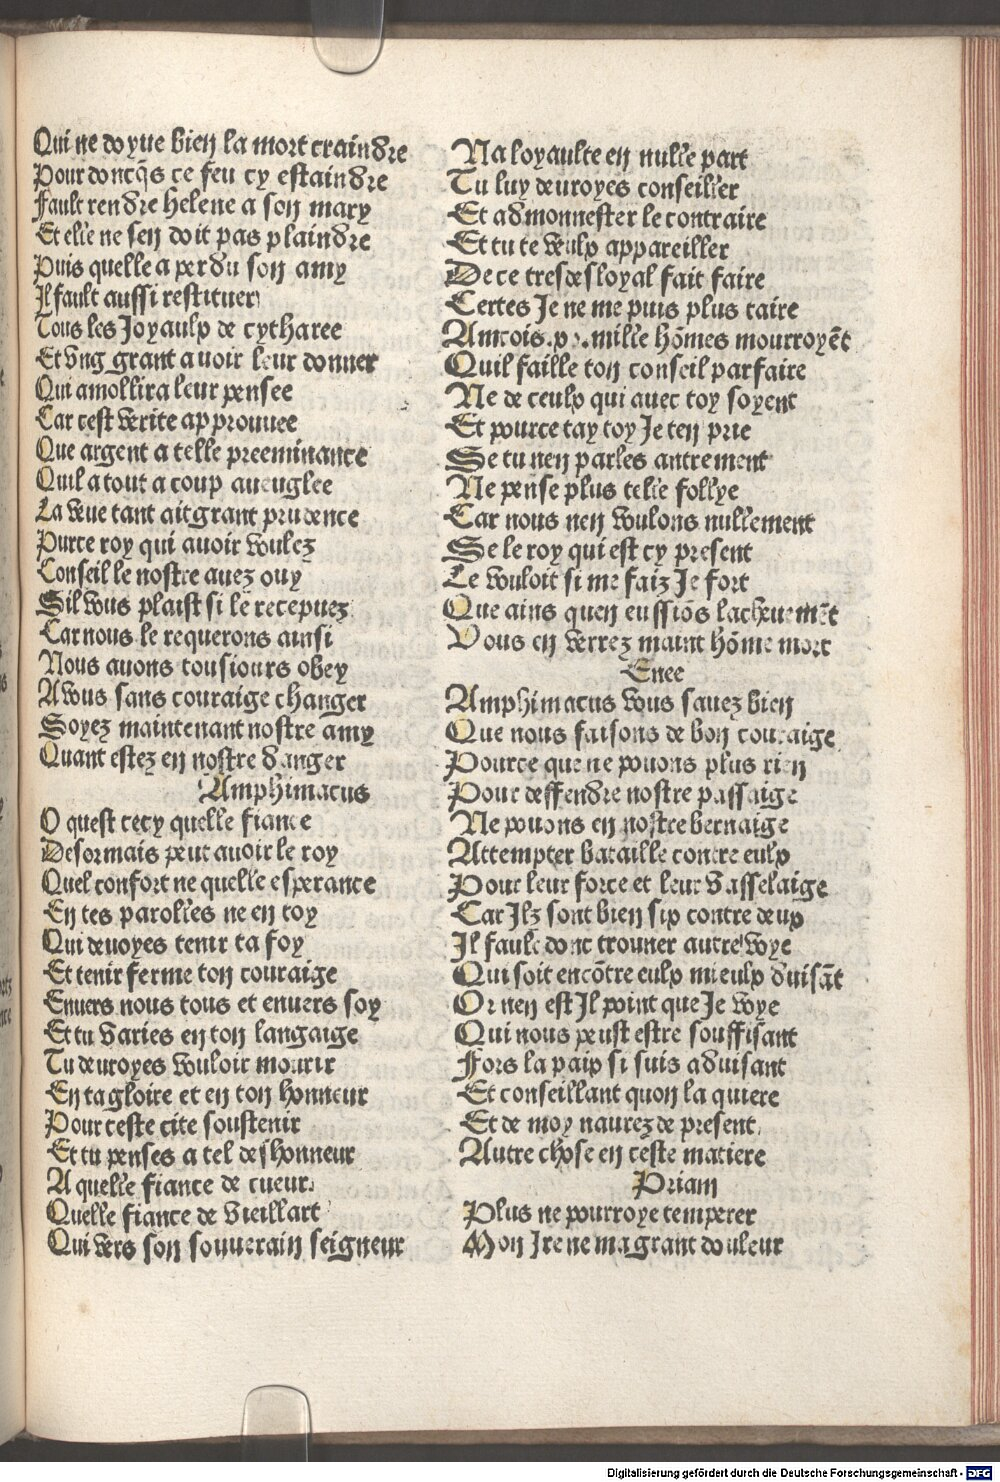 Qui ne doyue bien la mort craindre
Pour doncq̄s ce feu cy estaindre
Fault rendre helene a son mary
Et elle ne sen doit pas plaindre
Puis quelle a perdu son amy
Il fault aussi restituer
Tous les Joyaulx de cytharee
Et vng grant auoir leur donner
Qui amollira leur pensee
Car cest verite approuuee
Que argent a telle preeminance
Quil a tout a coup aueuglee
La veue tant ait grant prudence
Purce roy qui auoir voulez
Conseil le nostre auez ouy
Sil vous plaist si le recepuez
Car nous le requerons ainsi
Nous auons tousiours obey
A vous sans couraige changer
Soyez maintenant nostre amy
Quant estez en nostre danger
Amphimacus
O quest cecy quelle fiance
Desormais peut auoir le roy
Quel confort ne quelle esperance
En tes parolles ne en toy
Qui deuoyes tenir ta foy
Et tenir ferme ton couraige
Enuers nous tous et enuers soy
Et tu varies en ton langaige
Tu deuroyes vouloir mourir
En ta gloire et en ton honneur
Pour ceste cite soustenir
Et tu penses a tel deshonneur
A quelle fiance de cueur
Quelle fiance de vieillart
Qui vers son souuerain seigneur
Na loyaulte en nulle part
Tu luy deuroyes conseiller
Et admonnester le contraire
Et tu te veulx appareiller
De ce tresdesloyal fait faire
Certes Je ne me puis plus taire
Amcois .xx. mille hōmes mourroyēt
Quil faille ton conseil parfaire
Ne de ceulx qui auec toy soyent
Et pource tay toy Je ten prie
Se tu nen parles antrement
Ne pense plus telle follye
Car nous nen voulons nullement
Se le roy qui est cy present
Le vouloit si me faiz Je fort
Que ains quen eussiōs lacheuemēt
Vous en verrez maint hōme mort
Enee
Amphimacus vous sauez bien
Que nous faisons de bon couraige
Pource que ne pouons plus rien
Pour deffendre nostre passaige
Ne pouons en nostre bernaige
Attempter bataille contre eulx
Pour leur force et leur vasselaige
Car Ilz sont bien six contre deux
Il fault donc trouuer autre voye
Qui soit encōtre eulx mieulx duisāt
Or nen est Il point que Je voye
Qui nous peust estre souffisant
Fors la paix si suis aduisant
Et conseillant quon la quiere
Et de moy naurez de present
Autre chose en ceste matiere
Priam
Plus ne pourroye temperer
Mon Ire ne ma grant douleur
Digitalisierung gefördert durch die Deutsche Forschungsgemeinschaft - DFG